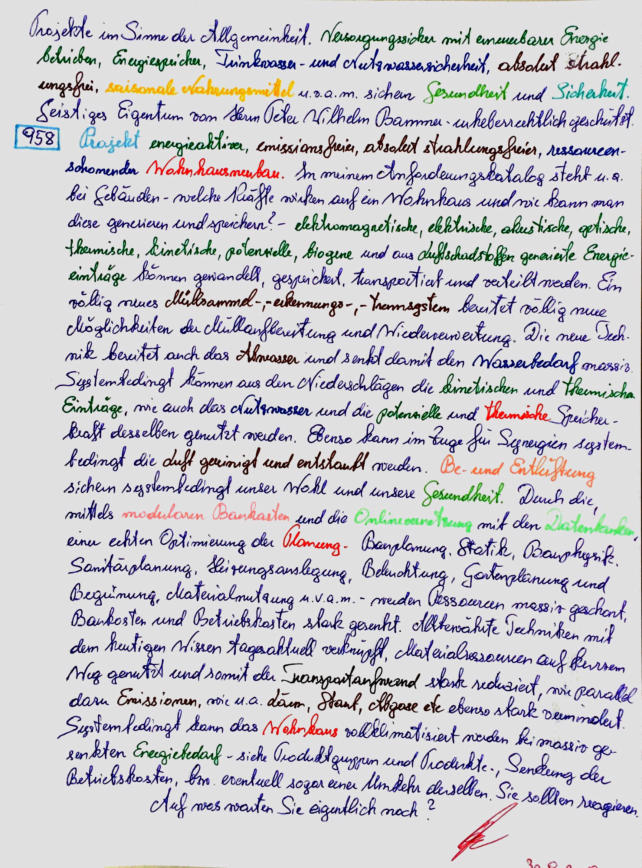 Projekte im Sinne der Allgemeinheit. Versorgungssicher mit erneuerbarer Energie
betrieben, Energiespeicher, Trinkwasser- und Nutzwassersicherheit, absolut strahl-
ungsfrei, saisonale Nahrungsmittel u.v.a.m. sichern Gesundheit und Sicherheit.
Geistiges Eigentum von Herrn Peter Wilhelm Bammer - urheberrechtlich geschützt.
958 Projekt energieaktiver, emissionsfreier, absolut strahlungsfreier, ressourcen-
schonender Wohnhausneubau. In meinem Anforderungskatalog steht u.a.
bei Gebäuden - welche Kräfte wirken auf ein Wohnhaus und wie kann man
diese generieren und speichern? - elektromagnetische, elektrische, akustische, optische,
thermische, kinetische, potenzielle, biogene und aus Luftschadstoffen generierte Energie-
einträge können gewandelt, gespeichert, transportiert und verteilt werden. Ein
völlig neues Müllsammel-, -erkennungs-, -trennsystem bereitet völlig neue
Möglichkeiten der Müllaufbereitung und Wiederverwertung. Die neue Tech-
nik bereitet auch das Abwasser und senkt damit den Wasserbedarf massiv.
Systembedingt können aus den Niederschlägen die kinetischen und thermischen
Einträge, wie auch das Nutzwasser und die potenzielle und thermische Speicher-
kraft desselben genutzt werden. Ebenso kann im Zuge für Synergien system-
bedingt die Luft gereinigt und entstaubt werden. Be- und Entlüftung
sichern systembedingt unser Wohl und unsere Gesundheit. Durch die,
mittels modularen Baukasten und die Onlinevernetzung mit den Datenbanken,
einer echten Optimierung der Planung - Bauplanung, Statik, Bauphysik,
Sanitärplanung, Heizungsauslegung, Beleuchtung, Gartenplanung und
Begrünung, Materialnutzung u.v.a.m. - werden Ressourcen massiv geschont,
Baukosten und Betriebskosten stark gesenkt. Altbewährte Techniken mit
dem heutigen Wissen tagesaktuell verknüpft, Materialressourcen auf kurzem
Weg genutzt und somit der Transportaufwand stark reduziert, wie parallel
dazu Emissionen, wie u.a. Lärm, Staub, Abgase etc ebenso stark vermindert.
Systembedingt kann das Wohnhaus vollklimatisiert werden bei massiv ge-
senkten Energiebedarf - siehe Produktgruppen und Produkte -, Senkung der
Betriebskosten, bzw. eventuell sogar einer Umkehr derselben. Sie sollten reagieren.
Auf was warten Sie eigentlich noch?